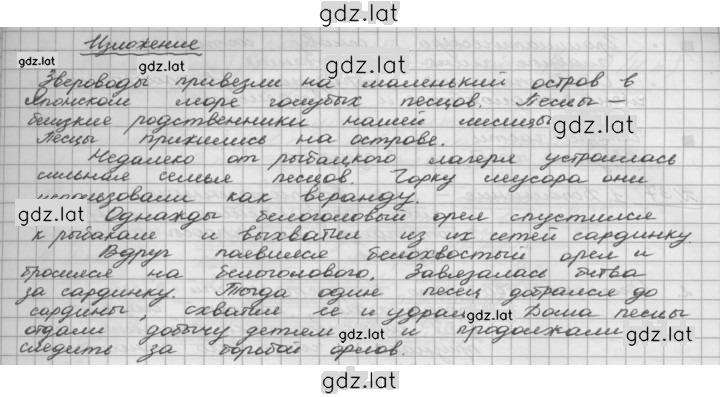 gdz.lat
Изложение
gdz.lat
gdz.lat
Звероводы привезли на маленький остров в
Японском море голубых песцов. Песцы –
близкие родственники нашей лисицы
gdz.lat
Песцы прижились на острове.
Недалеко от рыбацкого лагеря устроилась
сильная семья песцов. Горку мусора они
использовали как веранду.
gdz.lat
Однажды белоголовый орел спустился
к рыбакам и выхватил из их сетей сардинку.
Вдруг появился белохвостый орел и
бросился на белоголового. Завязалась битва
за сардинку. Тогда один песец добрался до
сардины, схватил ее и удрал. Дома песцы
gdz.lat
отдали добычу детям и продолжали
gdz.lat
gdz.lat
следить за борьбой орлов.
gdz.lat